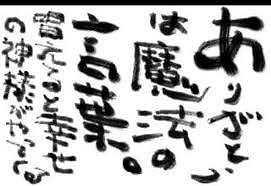 ありがとう
は魔法の
言葉。
言れると幸せ
の神様がやってくる